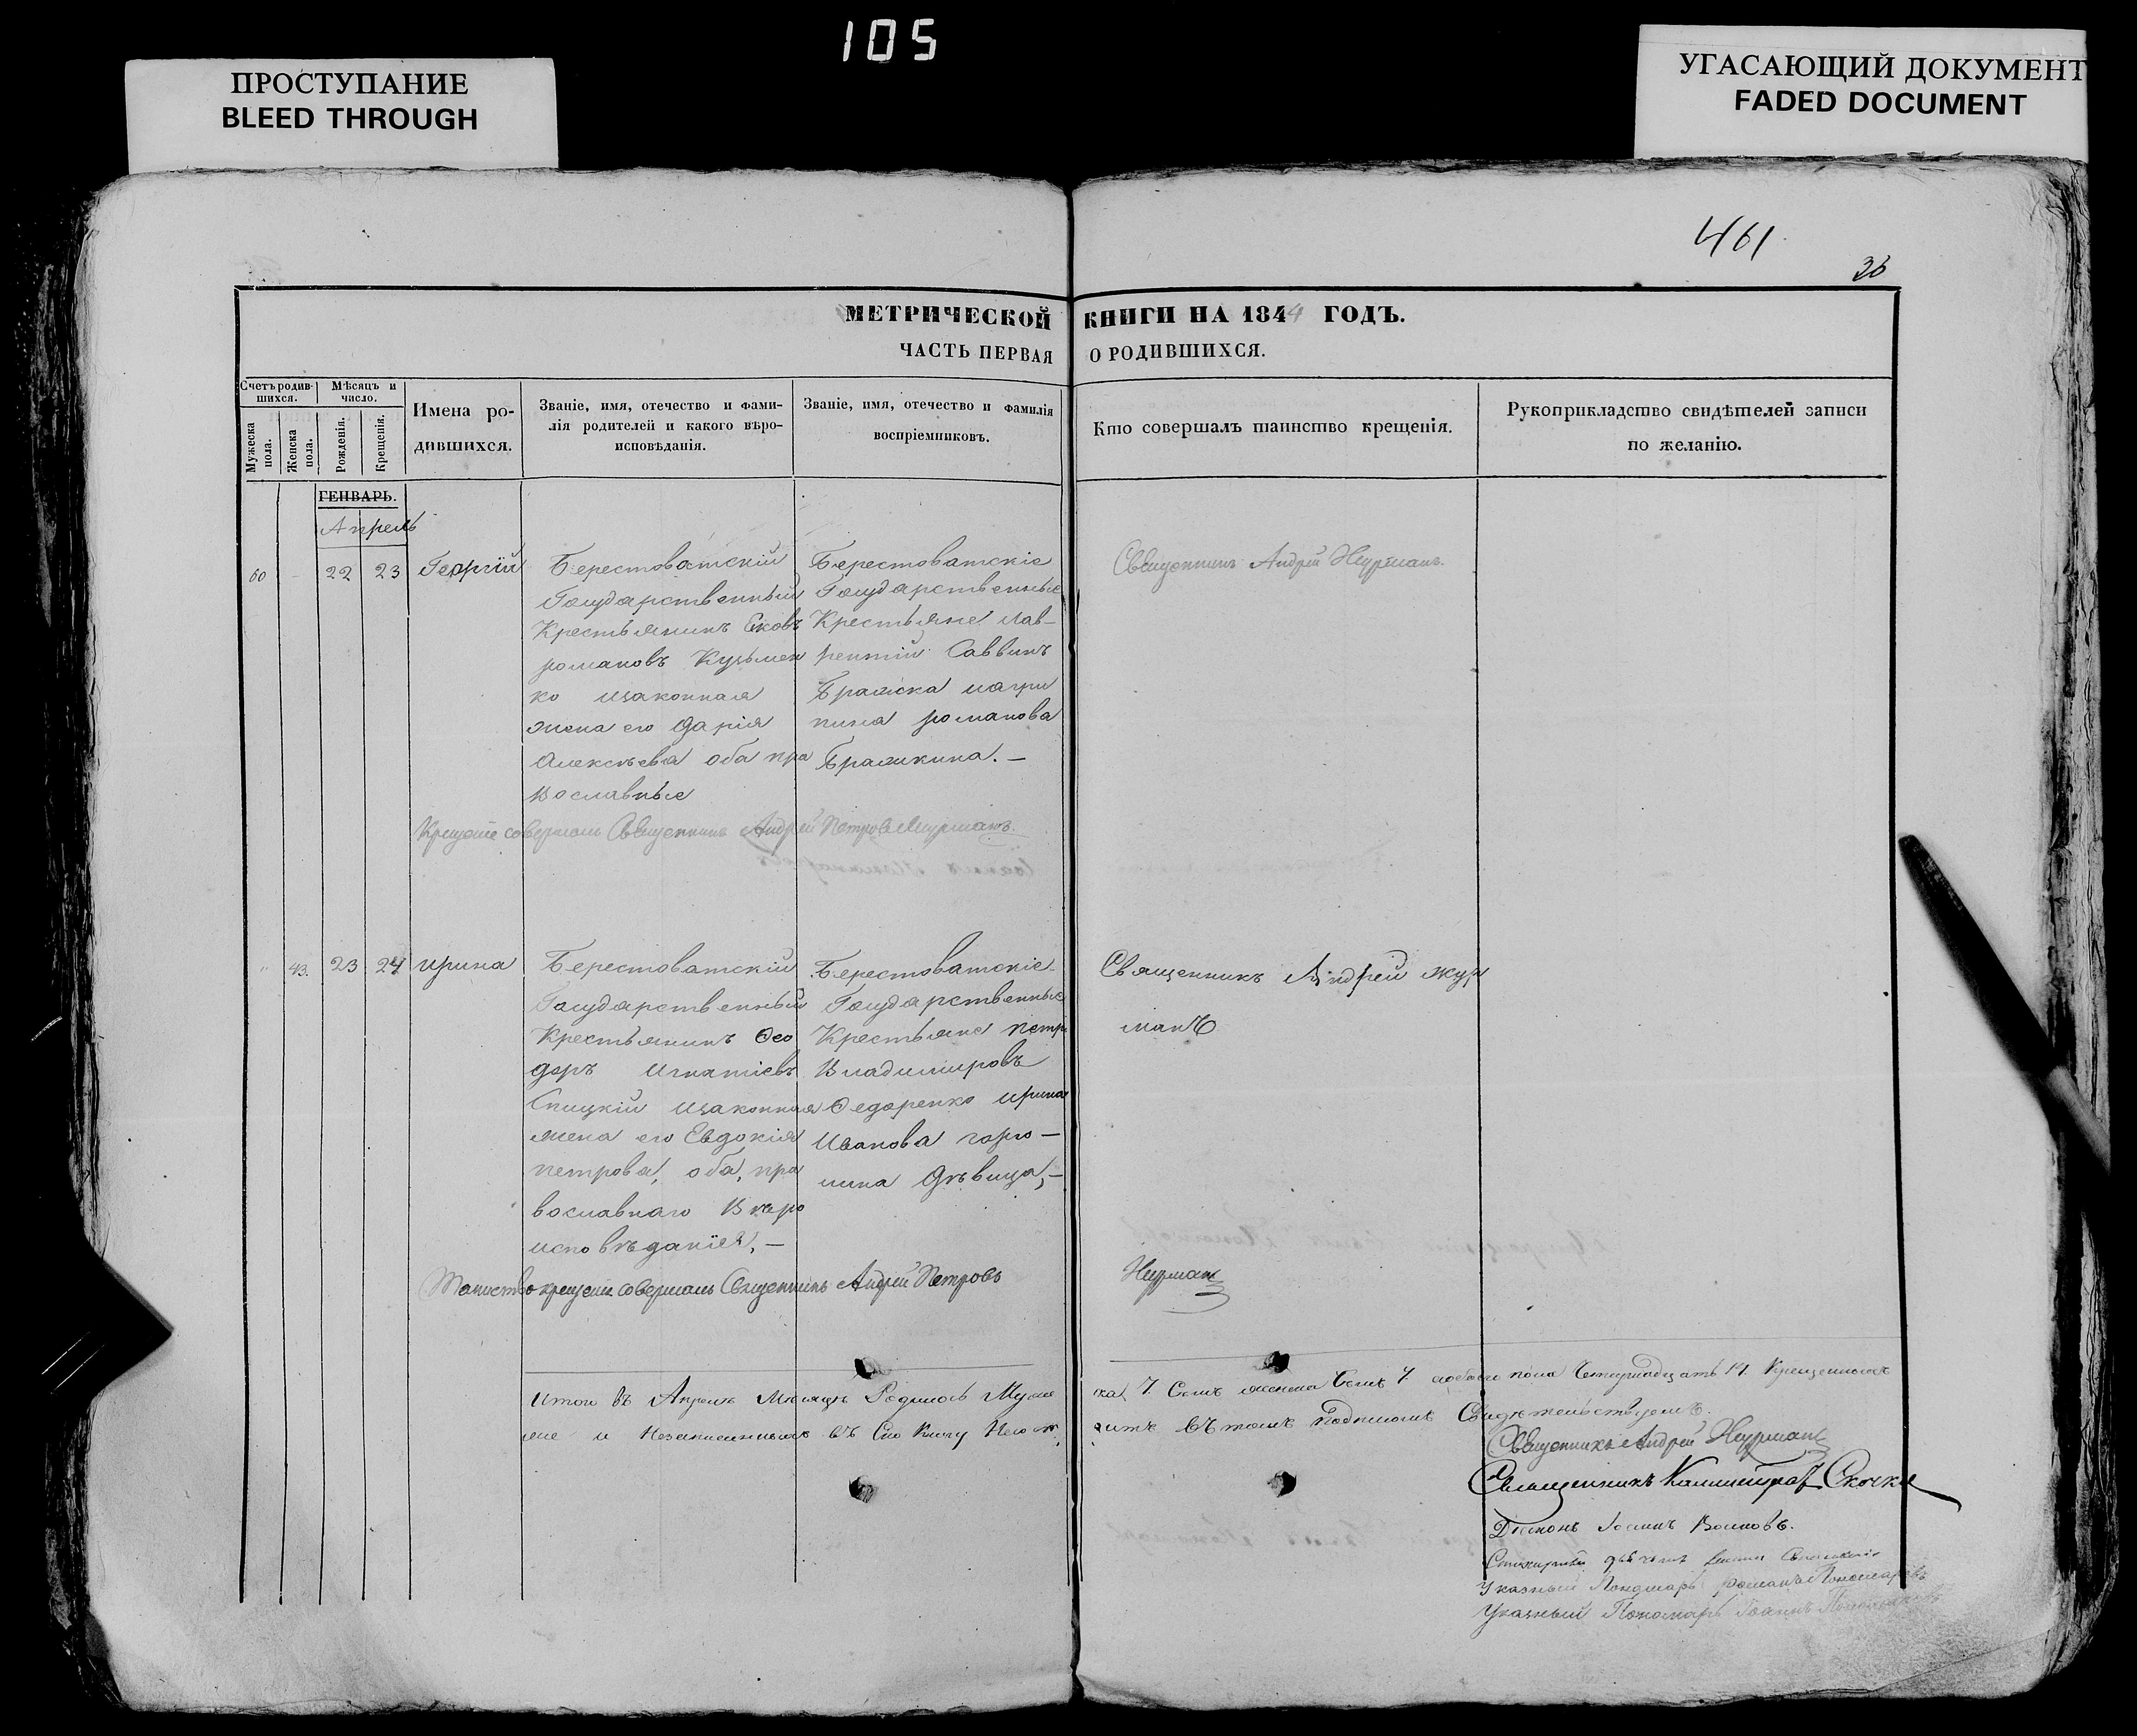 105
ПРОСТУПАНИЕ
BLEED THROUGH
УГАСАЮЩИЙ ДОКУМЕНТ
FADED DOCUMENT
461
МЕТРИЧЕСКОЙ КНИГИ НА 1844 ГОДЪ.
ЧАСТЬ ПЕРВАЯ О РОДИВШИХСЯ.
Счетъ родив-
шихся.
Мужеска
пола.
Женска
пола.
Мѣсяцъ и
число.
Рожденія.
Крещенія.
Имена ро-
дившихся.
Званіе, имя, отечество и фами-
лія родителей и какого вѣро-
исповѣданія.
Званіе, имя, отечество и фамилія
воспріемниковъ.
Кто совершалъ таинство крещенія.
Рукоприкладство свидѣтелей записи
по желанію.
ГЕНВАРЬ.
Апрель
60
22
23
Георгій
Берестоватскій
Государственный
Крестьянинъ
романовъ Кузьмен
ко изаконная
жена его Дарія
Алексѣева оба пра
вославные
Берестоватскіе
Государственные
Крестьяне Лав-
рентій Саввинъ
романова
Священникъ Андрей
Крещеніе совершалъ Священникъ Андрей Петровъ
43.
23
24
ирина
Берестоватскій
Государственный
Крестьянинъ Ѳео
доръ Игнатіевъ
изаконная
жена его Евдокія
петрова, оба, пра
вославнаго Вѣро
исповѣданія, —
Берестоватскіе
Государственные
Крестьяне петръ
Владимировъ
Ѳедоренко ирина
Иванова
дѣвица, —
Священникъ Андрей жур
манъ
Таинство крещенія совершалъ Священникъ Андрей Петровъ
Журманъ
Итого въ Апрелѣ Мѣсяцѣ Родилось Муже
ска 7. Семь женска Семь 7 обоего пола Четырнадцать 14. Крещенныхъ
же и Незаписанныхъ въ Сію Книгу
въ томъ подписомъ Свидѣтельствуемъ.
Священникъ Андрей Журманъ
Священникъ
Діаконъ Іоаннъ
Указный Пономарь романъ Пономаревъ
Указный Пономарь Іоаннъ